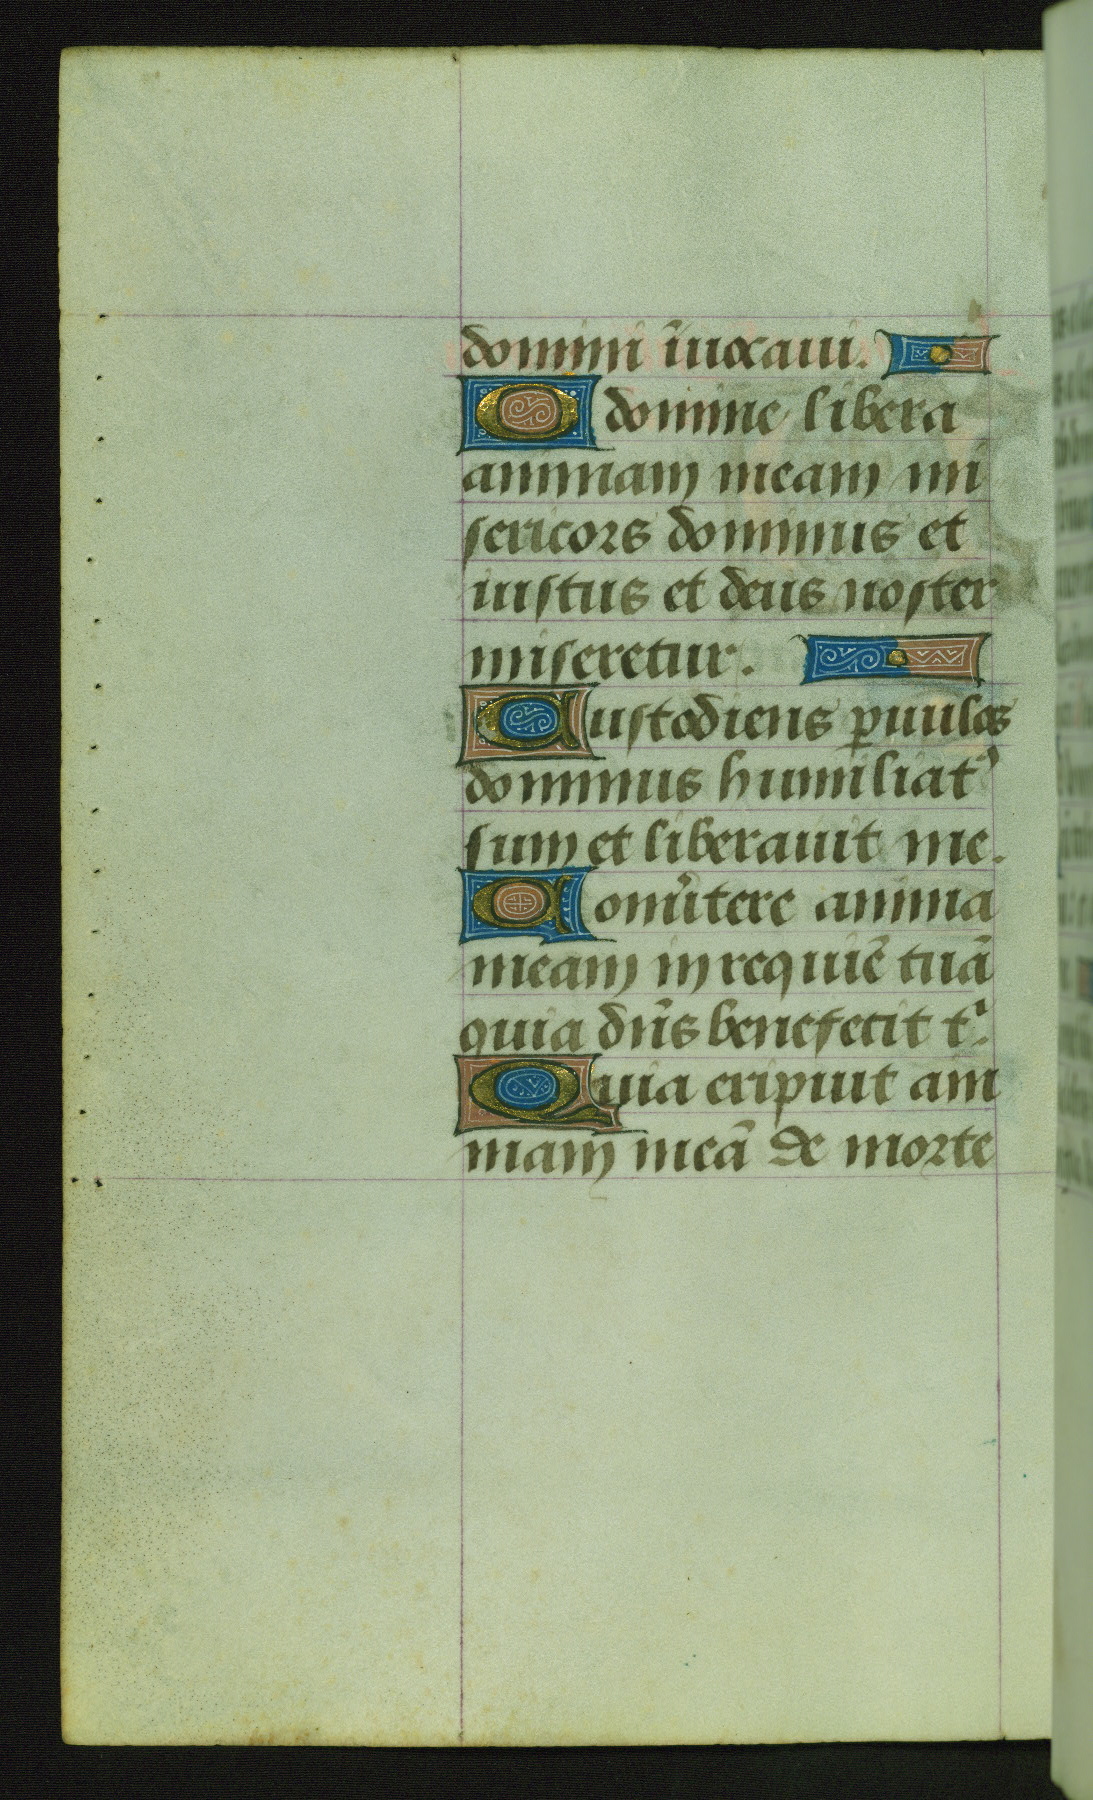 domini īuocaui.
O domine libera
animam meam mi
sericors dominus et
iustus et deus noster
miseretur.
Custodiens puulos
dominus humiliat᾽
sum et liberauit me.
Conu̾tere anima
meam in requiē tuā
quia dn̄s benefecit tⁱ.
Quia eripiut ani
mam meā de morte